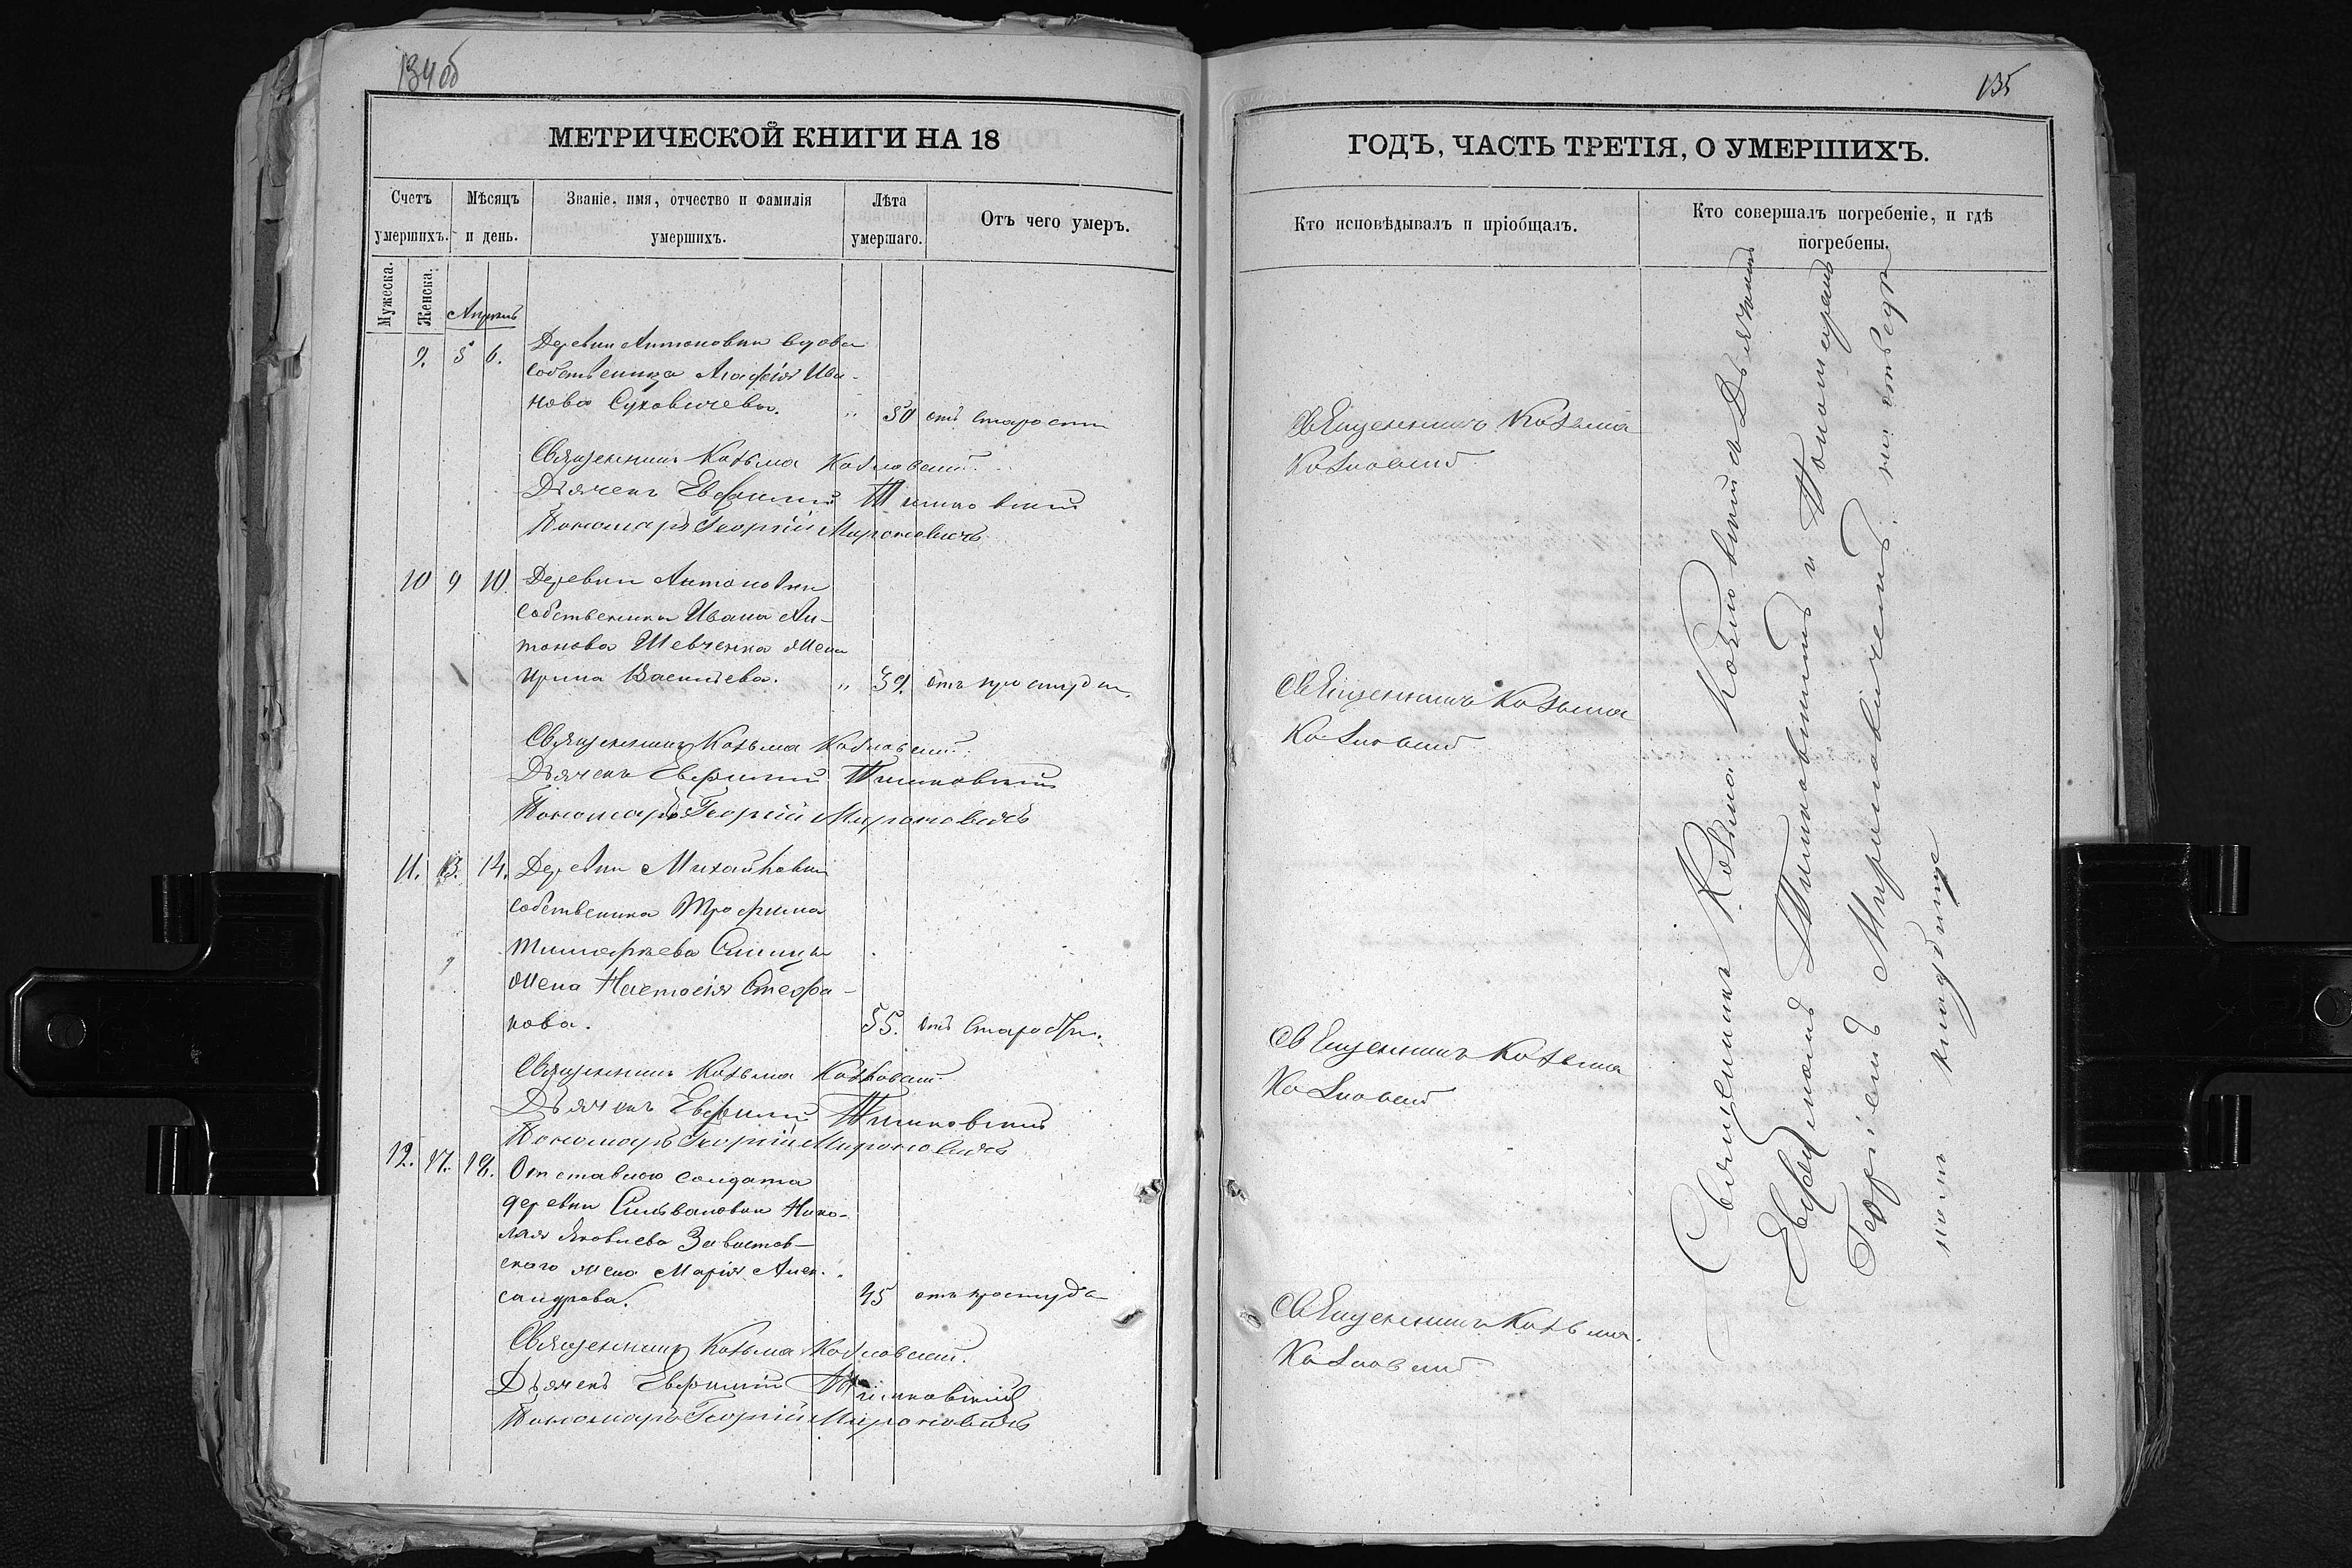 134об
МЕТРИЧЕСКОЙ КНИГИ НА 18
Счетъ умершихъ.
Мѣсяцъ и день.
Званіе, имя, отчество и фамилія умершихъ.
Лѣта умершаго.
Отъ чего умеръ.
Мужеска.
Женска.
Апрель
9. 5 6. Деревни Антоновки вдова
собственица Агафія Ива-
нова Суховичева. „ 50 отъ старости
Священникъ Козьма Козловскій.
Дьячекъ Евфимій Тимковскій
Пономарь Георгій Мироновичъ
10 9 10. Деревни Антоновки
собственика Ивана Ан-
тонова Шевченка жена
Ирина Васильева. „ 39. отъ простуды
Священникъ Козьма Козловскій.
Дьячекъ Евфимій Тимковскій
Пономарь Георгій Мироновичъ
11. 13. 14. Деревни Михайловки
собственика Трофима
жена Настасія Стефа-
нова. 55. отъ старости.
Священникъ Козьма Козловскій.
Дьячекъ Евфимій Тимковскій
Пономарь Георгій Мироновичъ
12. 17. 18. Отставного солдата
деревни Сильвановки Нико-
лая Яковлева
жена Марія Алек-
сандрова. 45 отъ простуды
Священникъ Козьма Козловскій.
Дьячекъ Евфимій Тимковскій
Пономарь Георгій Мироновичъ
135
ГОДЪ, ЧАСТЬ ТРЕТІЯ, О УМЕРШИХЪ.
Кто исповѣдывалъ и пріобщалъ.
Кто совершалъ погребеніе, и гдѣ погребены.
Священникъ Козьма
Козловскій
Священникъ Козьма
Козловскій
Священникъ Козьма
Козловскій
Священникъ Козьма.
Козловскій
Священникъ Козьма Козловскій съ Дьячкомъ
Евфиміемъ Тимковскимъ и Пономаремъ
Георгіемъ Мироновичемъ. на
кладбище